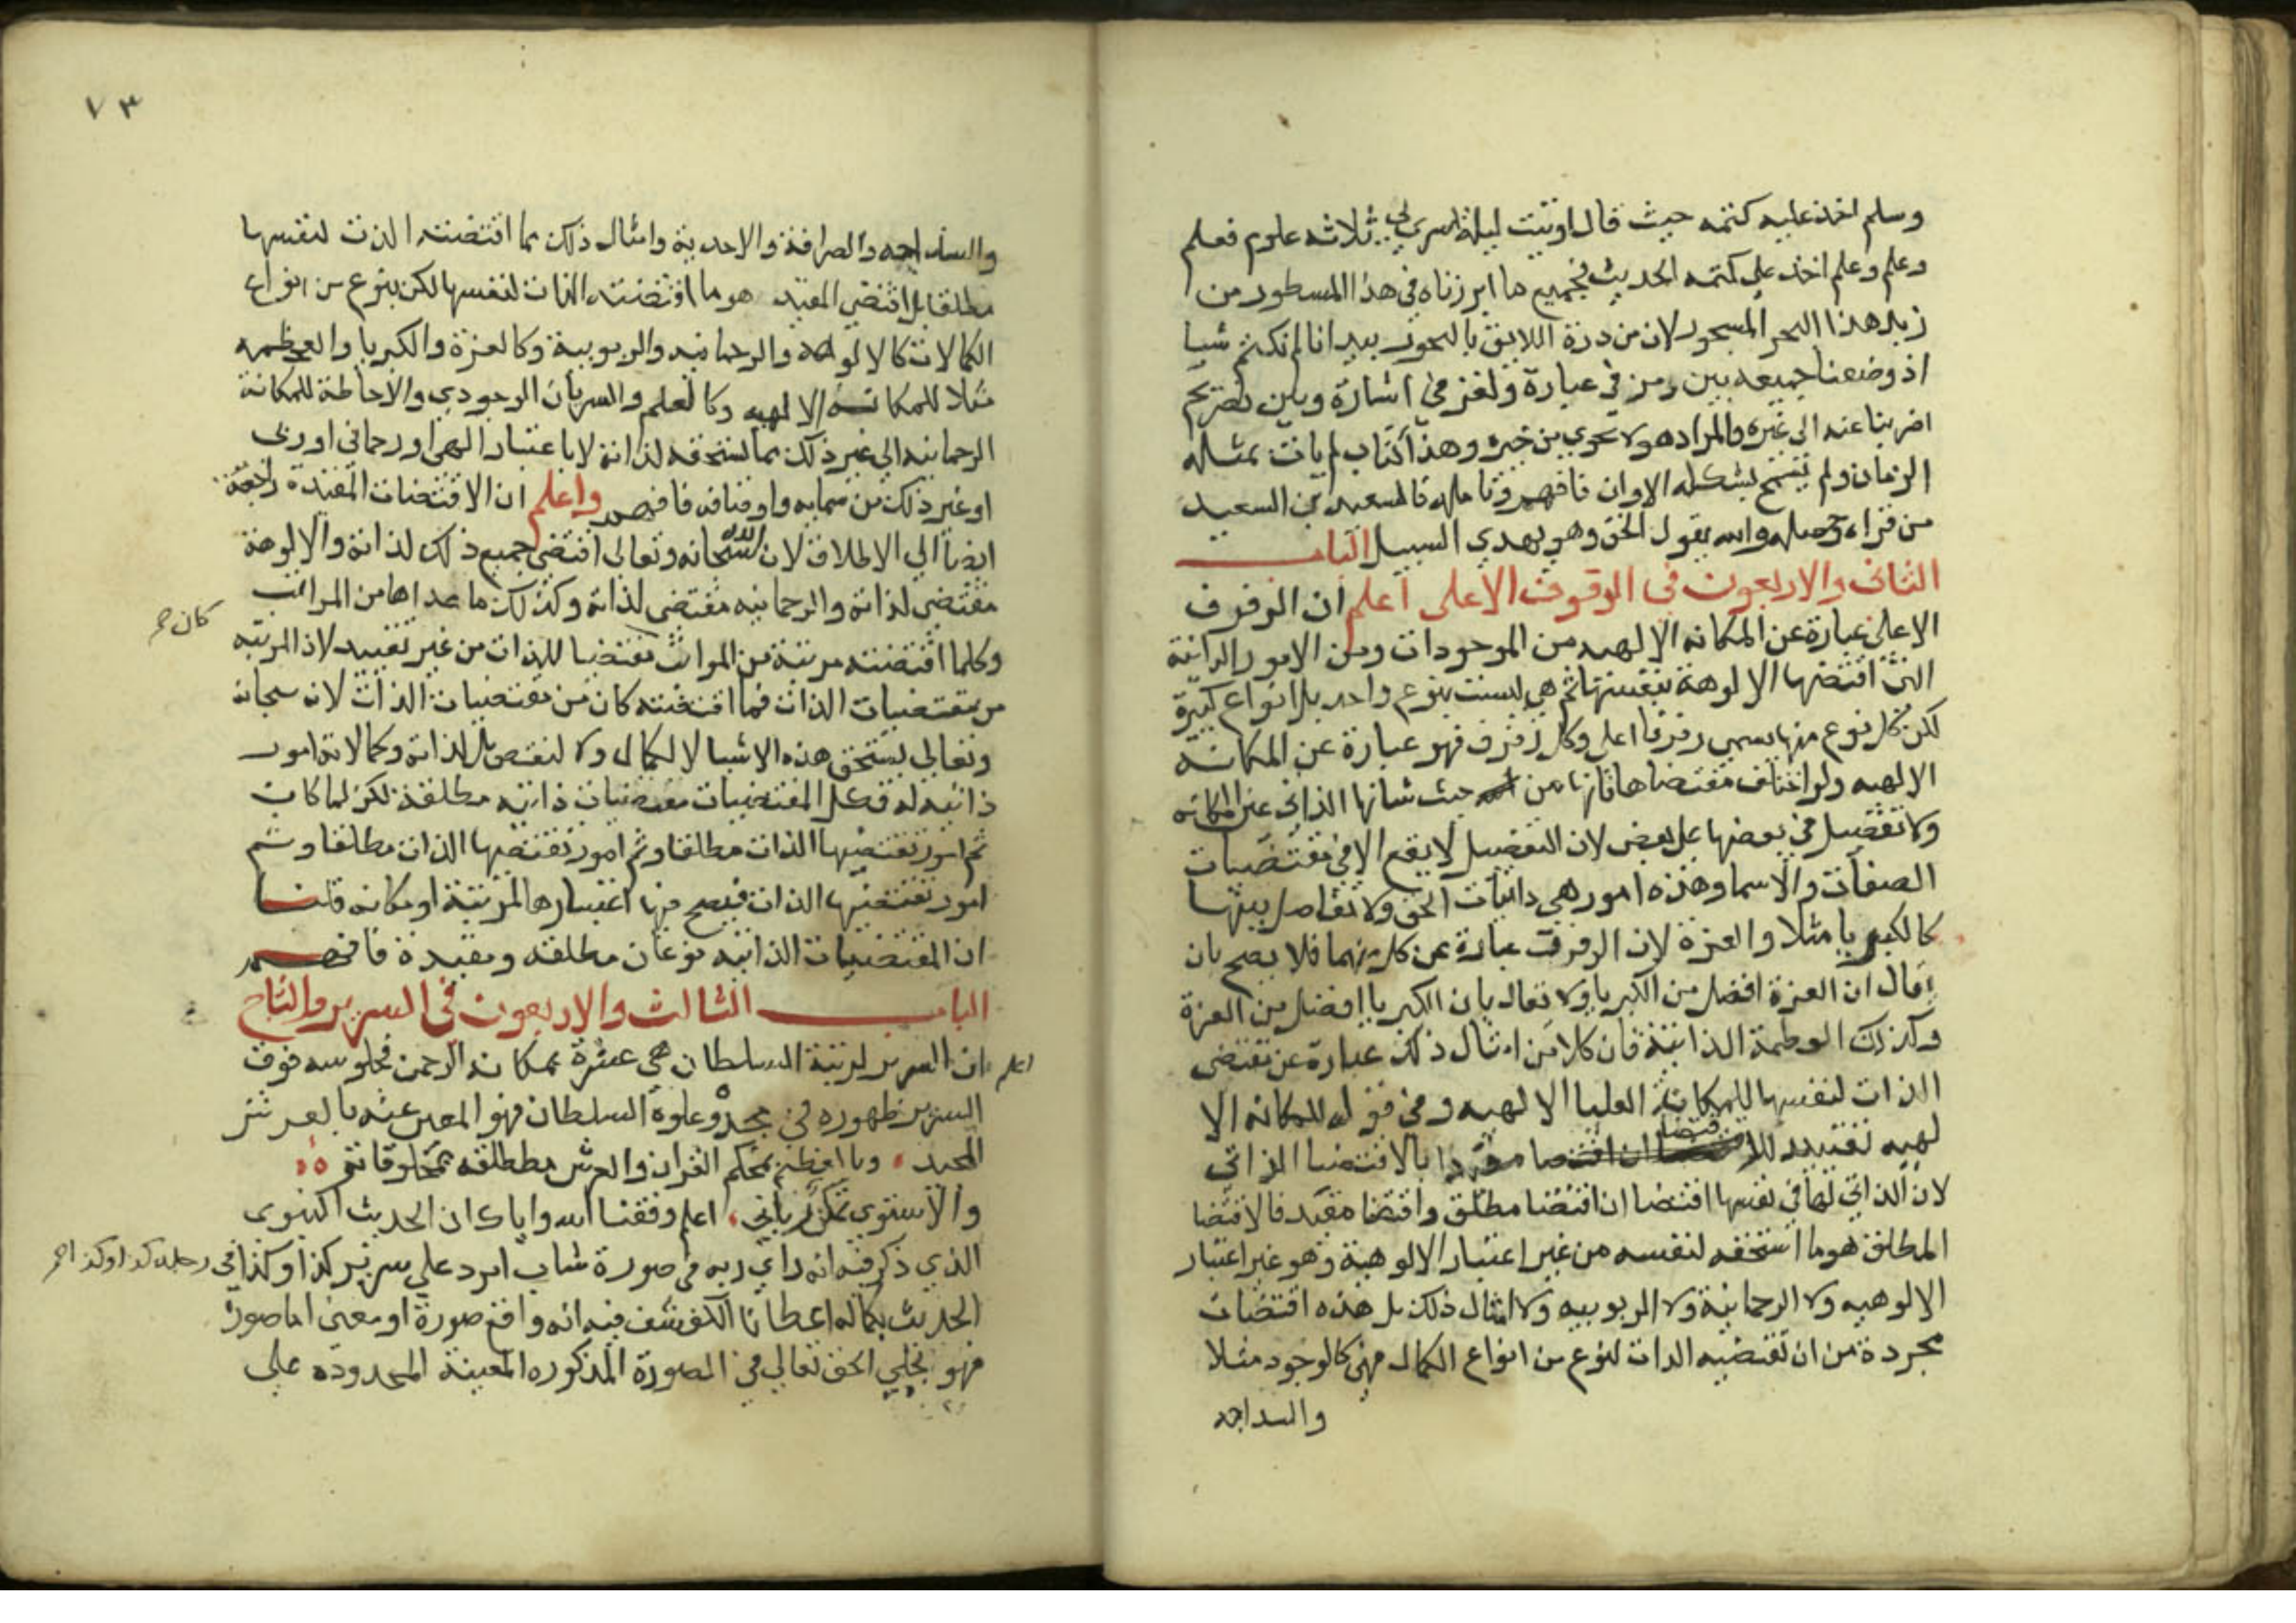 وسلم اخذ عليه كتمه حيث قال اوتيت ليلة اسري بي ثلاثه علوم فعلم
وعلم وعلم اخذ علي كتمه الحديث فجميع ما ابرزناه في هذا المسطور من
زبد هذا البحر المسجور لان من درة اللايق بالبحور بيد انا لم نكتم شيا
اذ وضعنا جميعه بين رمز في عبارة ولغز في اشارة وبين تصريح
اضربنا عنه الي غيره والمراد هو لا يحوي من خيره وهذا كتاب لم يات بمثله
الزمان ولم يسمح بشكله الاوان فافهم وتامله فالسعيد بن السعيد
من قراه وحصله والله يقول الحق وهو يهدي السبيل الباب
الثاني والاربعون في الرفرف الاعلى اعلم ان الرفرف
الاعلي عبارة عن المكانه الالهيه من الموجودات ومن الامور الذاتية
التي اقتضتها الالوهة بنفسها ثم هي ليست بنوع واحد بل انواع كثيرة
لكن كل نوع منها يسمي رفرفا اعلي وكل رفرف فهو عبارة عن المكانه
الالهيه ولو اختلف مقتضاها فانها من حيث شانها الذاتي عين المكانه
ولا تفضيل في بعضها علي بعض لان التفضيل لا يقع الا في مقتضيات
الصفات والاسما وهذه امور هي ذاتيات الحق ولا تفاضل بينها
كالكبريا مثلا والعزة لان الرفرف عبارة عن كل منهما فلا يصح بان
يقال ان العزة افضل من الكبريا ولا تقال بان الكبريا افضل من العزة
وكذلك العظمة الذاتية فان كلا من امثال ذلك عبارة عن مقتضي
الذات لنفسها للمكانة العليا الالهيه وفي قوله للمكانه الا
لهيه تقييد للاقتضا بالاقتضا الذاتي
لان الذاتي لها في نفسها اقتضا ان اقتضا مطلق واقتضا مقيد فالاقتضا
المطلق هو ما استحقه لنفسه من غير اعتبار الالوهية وهو غير اعتبار
الالوهيه ولا الرحمانية ولا الربوبيه ولا امثال ذلك بل هذه اقتضات
مجردة من ان تقتضيه الذات لنوع من انواع الكمال فهي كالوجود مثلا
والسداجه
٧٣
والسداجه والصرافة والاحدية وامثال ذلك مما اقتضته الذت لنفسها
مطلقا بل اقتضي المقيد هو ما اقتضته الذات لنفسها لكن بنوع من انواع
الكمالات كالالوهة والرحمانيه والربوبية وكالعزة والكبريا والعظمه
مثلا للمكانه الالهيه وكالعلم والسريان الوجودي والاحاطة للمكانة
الرحمانيه الي غير ذلك مما يستحقه لذاته لا باعتبار الهي او رحماني او ربي
او غير ذلك من سمايه واوصافه فافهم واعلم ان الاقتضات المقيدة راجعة
ايضا الي الاطلاق لان الله سبحانه وتعالي اقتضي جميع ذلك لذاته والالوهة
مقتضي لذاته والرحمانيه مقتضي لذاته وكذلك ما عداها من المراتب
كان صح
وكلما اقتضته مرتبة من المراتب مقتضيا للذات من غير تقييد لان المرتبه
من مقتضيات الذات فما اقتضته كان من مقتضيات الذات لانه سبحانه
وتعالي يستحق هذه الاشيا لا لكمال ولا لنقص بل لذاته وكمالاته امور
ذاتيه له فكل المقتضيات مقتضيات ذاتيه مطلقة لكن لما كان
ثم امور تقتضيها الذات مطلقا وثم امور تقتضيها الذات مطلقا وثم
امور تقتضيها الذات فيصح فيها اعتبارها لمرتبة او مكانه قلنا
ان المقتضيات الذاتيه نوعان مطلقه ومقيدة فافهم
الباب الثالث والاربعون في السرير والتاج
اعلم ان السرير لرتبة السلطان هي عشرة بمكانه الرحمن فجلوسه فوق
السرير ظهوره في مجده وعلوه السلطان فهو المعبر عنه بالعرش
المجيد وبا بمحكم القران والعرش مطلقه مخلوقاته
والاستوي تمكن رباني اعلم وفقنا الله واياك ان الحديث النبوي
الذي ذكر فيه انه راي ربه في صورة شاب امرد علي سرير كذا وكذا في
رجليه كذا وكذا صح
الحديث بكماله اعطانا الكشف فيه انه واقع صورة او معنى اما صورة
فهو تجلي الحق تعالي في الصورة المذكوره المعينة المحدوده علي